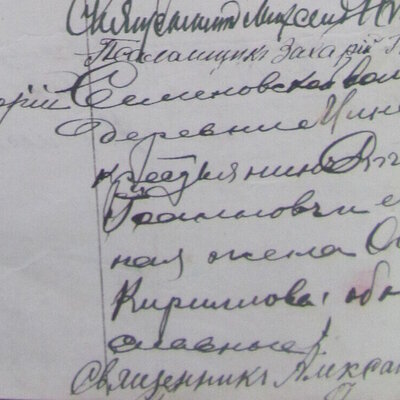 Священникъ Михаилъ
Псаломщикъ Захарій
рій Семеновской вол
деревни
крестьянинъ
Іоанновъ и
ная жена
Кириллова, об
славные
Священникъ Алекса